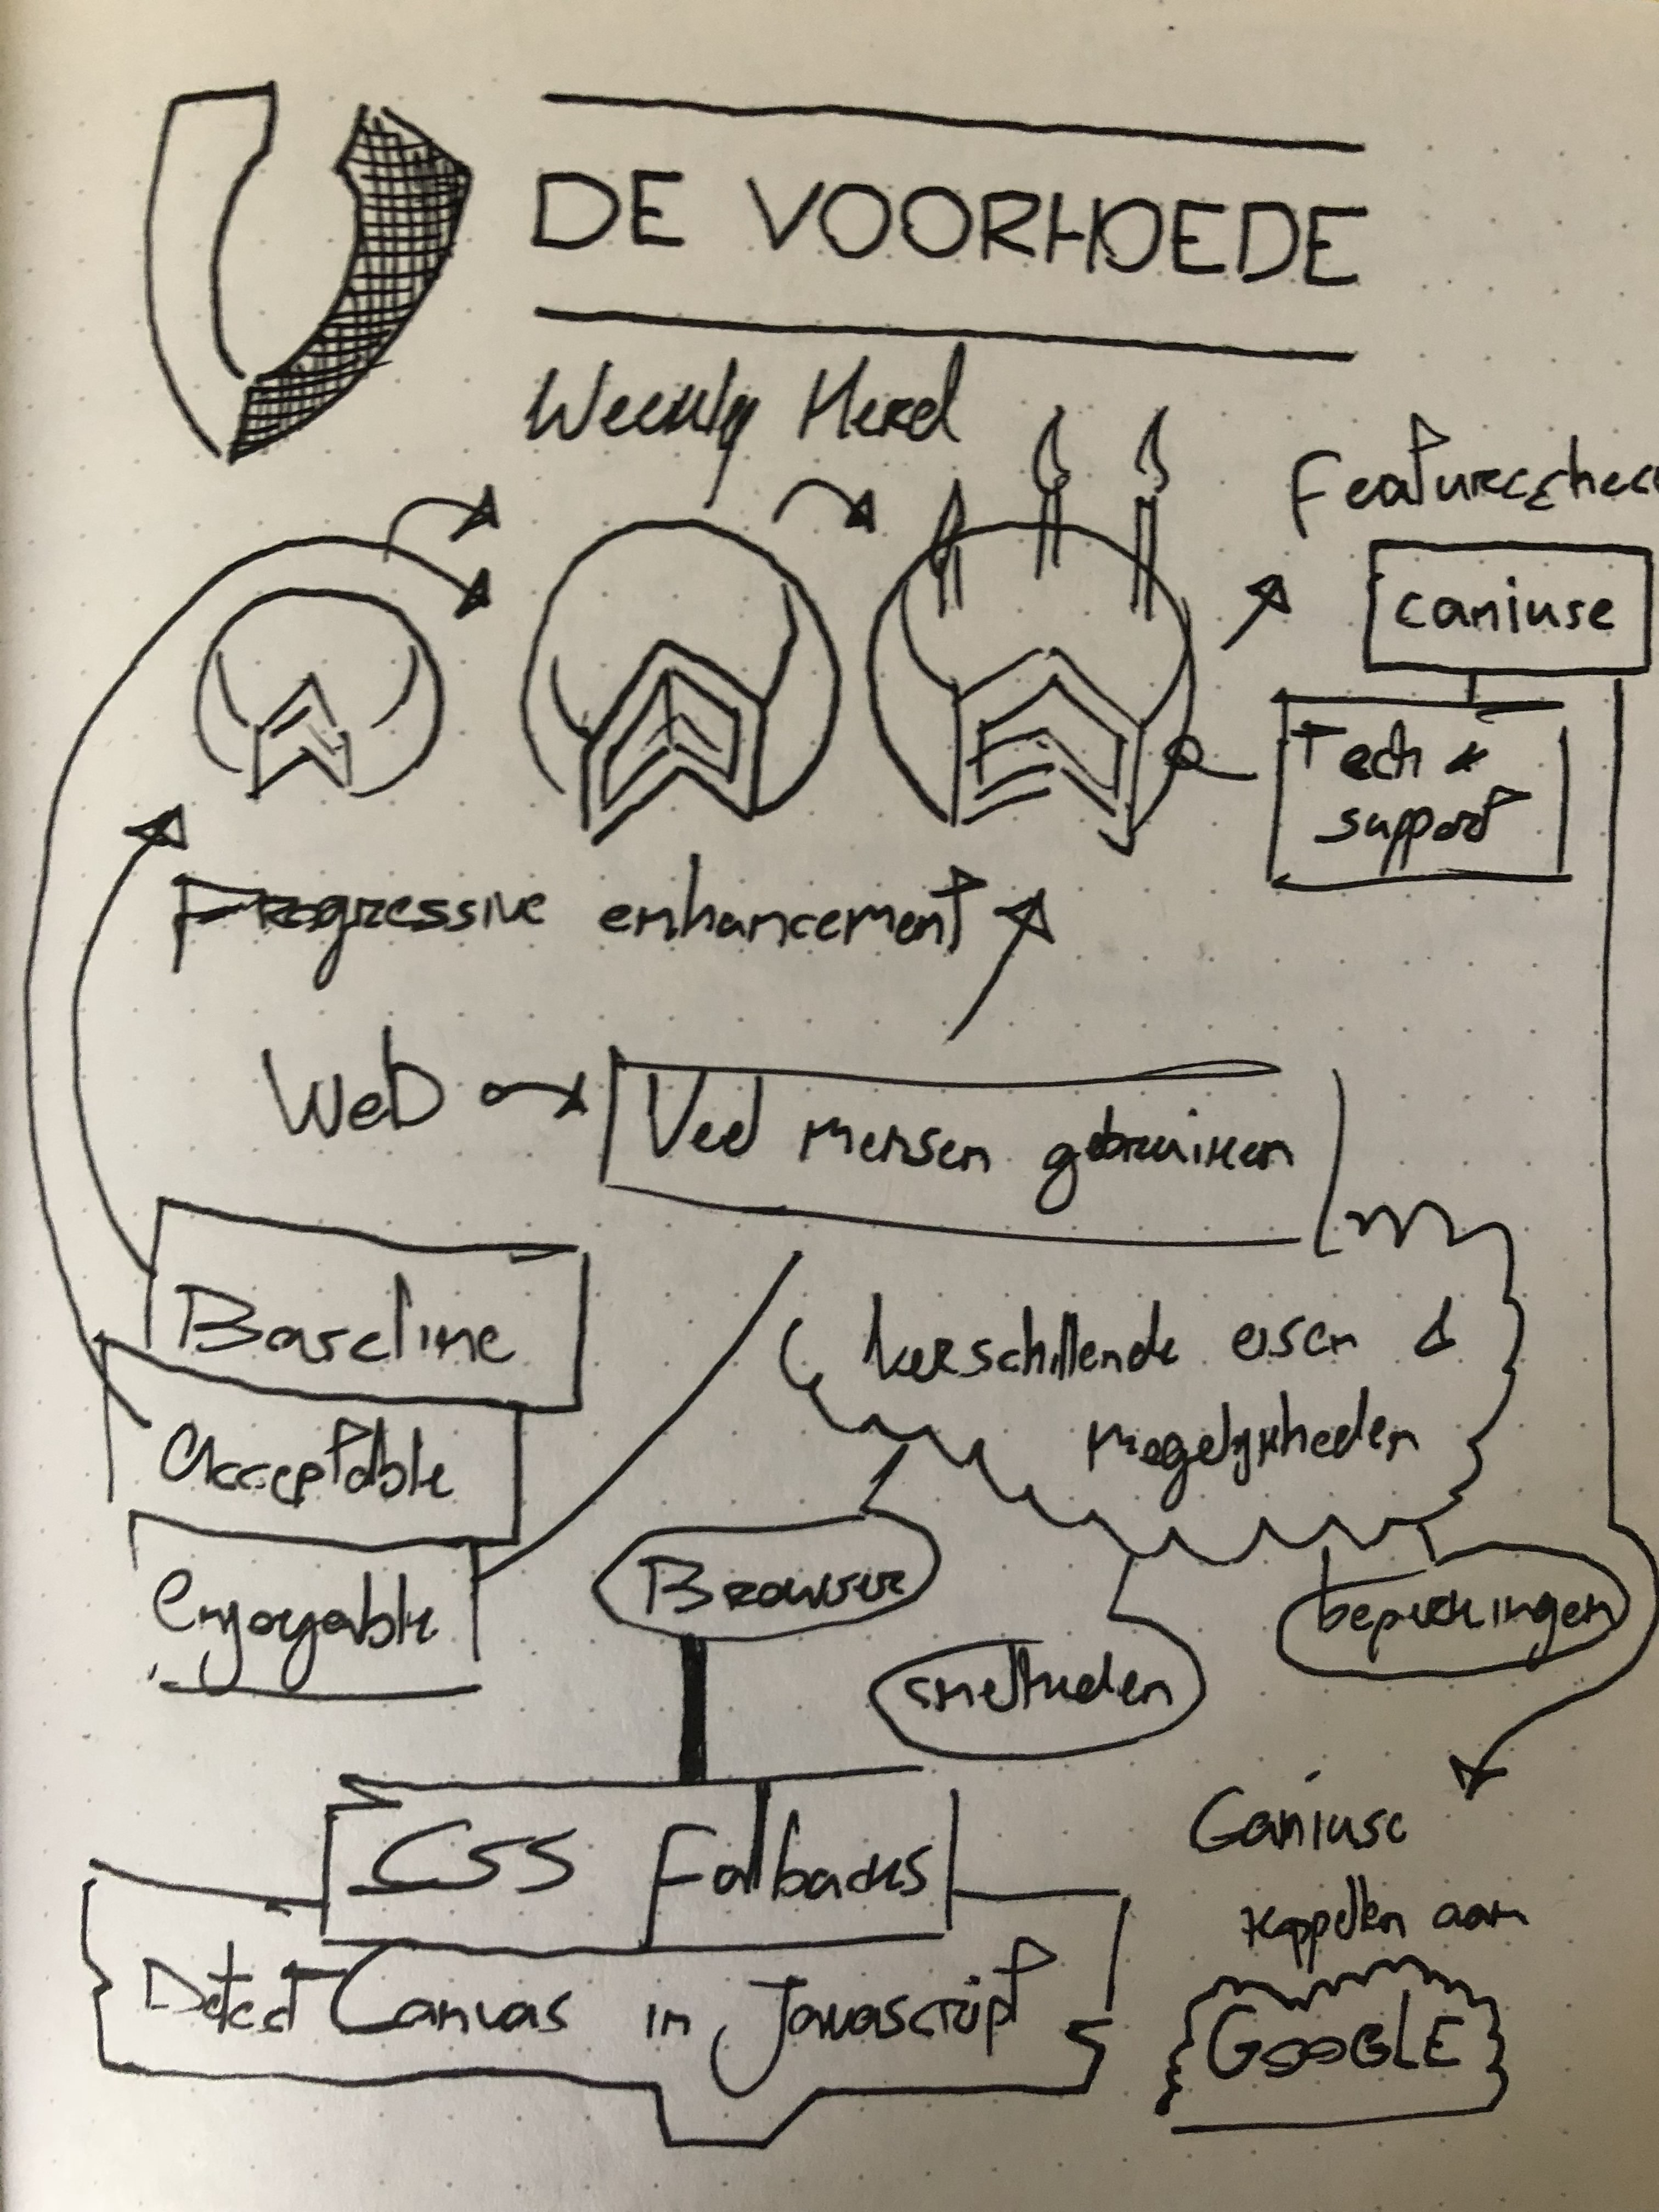 DE VOORHOEDE
Weekly Nerd
Feature
caniuse
Tech &
support
Progressive enhancement
Web
Veel mensen gebruiken
Baseline
Acceptable
Enjoyable
Verschillende eisen &
mogelijkheden
Browser
snelheden
beperkingen
CSS Fallbacks
Detect Canvas in Javascript
Caniuse
koppelen aan
GOOGLE